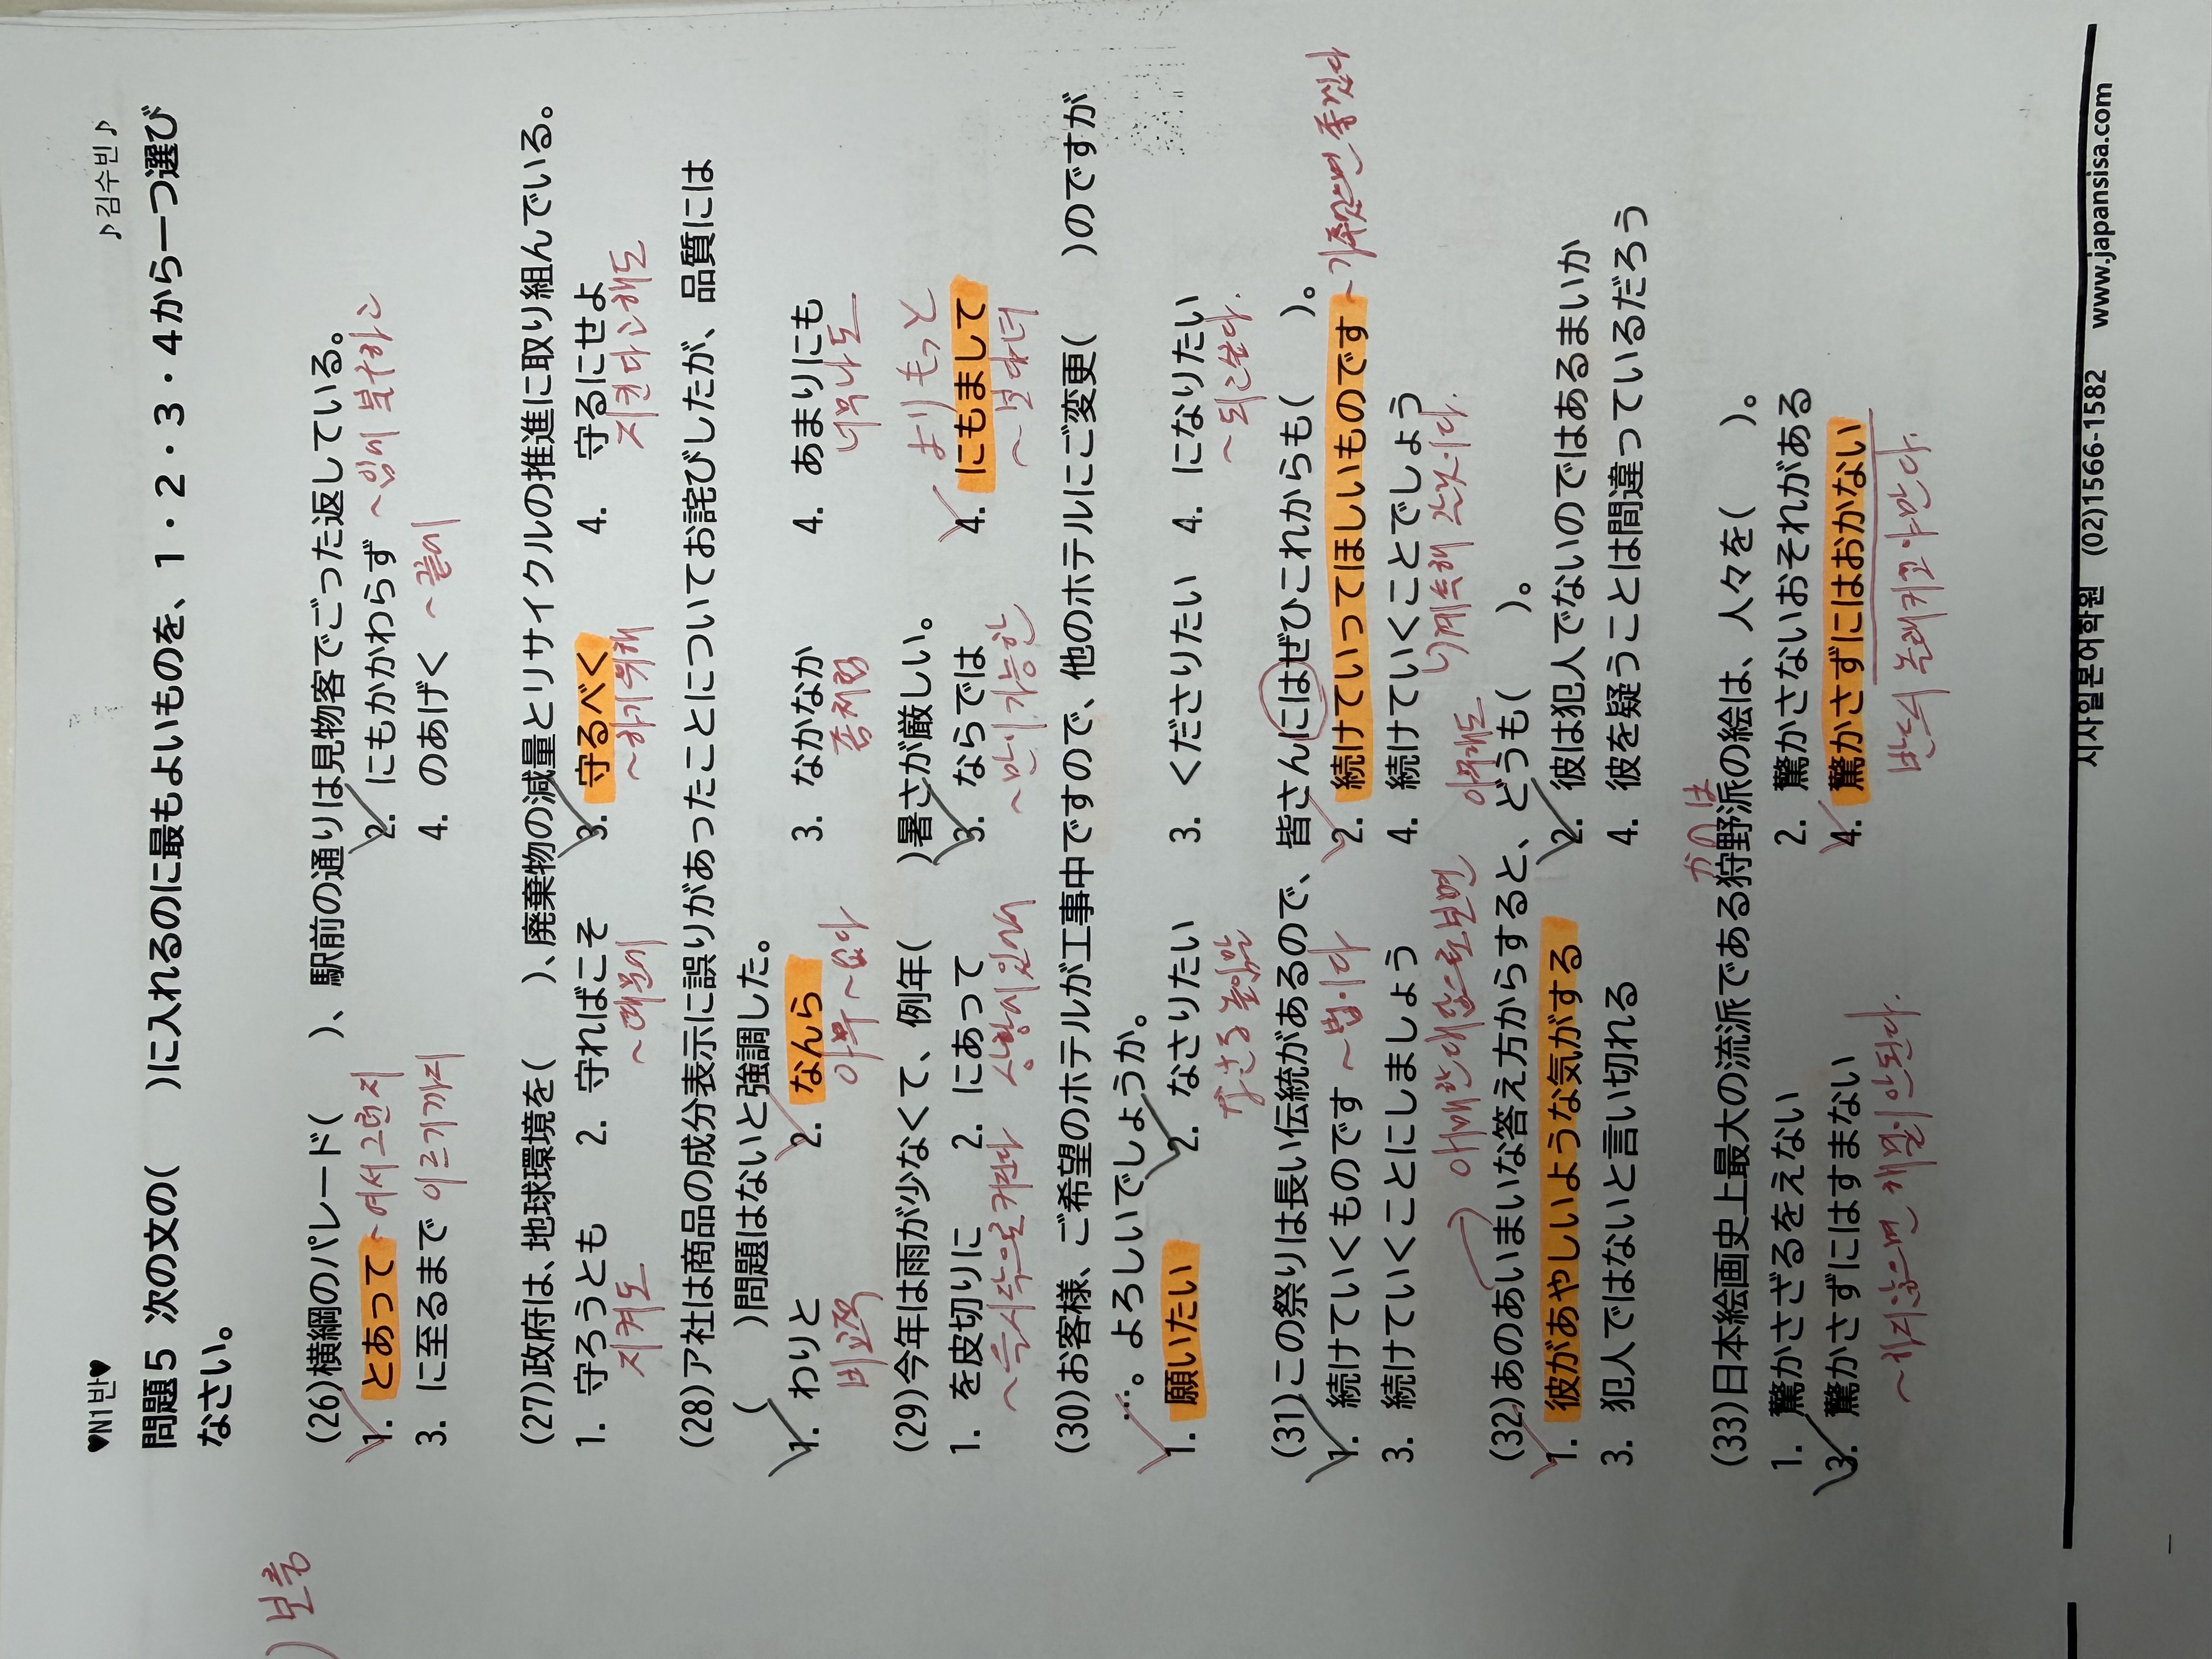 ♥N1반♥
♪김수빈♪
問題5 次の文の(　　)に入れるのに最もよいものを、1・2・3・4から一つ選び
なさい。
) 보충
(26)横綱のパレード(　　)、駅前の通りは見物客でごった返している。
1. とあって ~여서 그런지 2. にもかかわらず ~임에 불구하고
3. に至るまで 이르기까지 4. のあげく ~끝에
(27)政府は、地球環境を(　　)、廃棄物の減量とリサイクルの推進に取り組んでいる。
1. 守ろうとも 2. 守ればこそ 3. 守るべく 4. 守るにせよ
지켜도 ~때문에 ~하기 위해 지킨다 해도
(28)ア社は商品の成分表示に誤りがあったことについてお詫びしたが、品質には
(　　)問題はないと強調した。
1. わりと 2. なんら 3. なかなか 4. あまりにも
비교적 아무~없다 좀처럼 너무나도
(29)今年は雨が少なくて、例年(　　)暑さが厳しい。
よりもっと
1. を皮切りに 2. にあって 3. ならでは 4. にもまして
~을 시작으로 상황에 있어서 ~만이 가능한 ~보다 더
(30)お客様、ご希望のホテルが工事中ですので、他のホテルにご変更(　　)のですが
…。よろしいでしょうか。
1. 願いたい 2. なさりたい 3. くださりたい 4. になりたい
なさる 높임말 ~되고 싶다.
(31)この祭りは長い伝統があるので、皆さんにはぜひこれからも(　　)。
1. 続けていくものです ~법이다 2. 続けていってほしいものです ~가 주었으면 좋겠다
3. 続けていくことにしましょう 4. 続けていくことでしょう
애매한 대답으로 보면 아무래도
(32)あのあいまいな答え方からすると、どうも(　　)。
1. 彼があやしいような気がする 2. 彼は犯人でないのではあるまいか
3. 犯人ではないと言い切れる 4. 彼を疑うことは間違っているだろう
かのは
(33)日本絵画史上最大の流派である狩野派の絵は、人々を(　　)。
1. 驚かさざるをえない 2. 驚かさないおそれがある
3. 驚かさずにはすまない 4. 驚かさずにはおかない
~하지 않으면 해결이 안된다. 반드시 놀래키고야 만다.
시사일본어학원 (02)1566-1582 www.japansisa.com